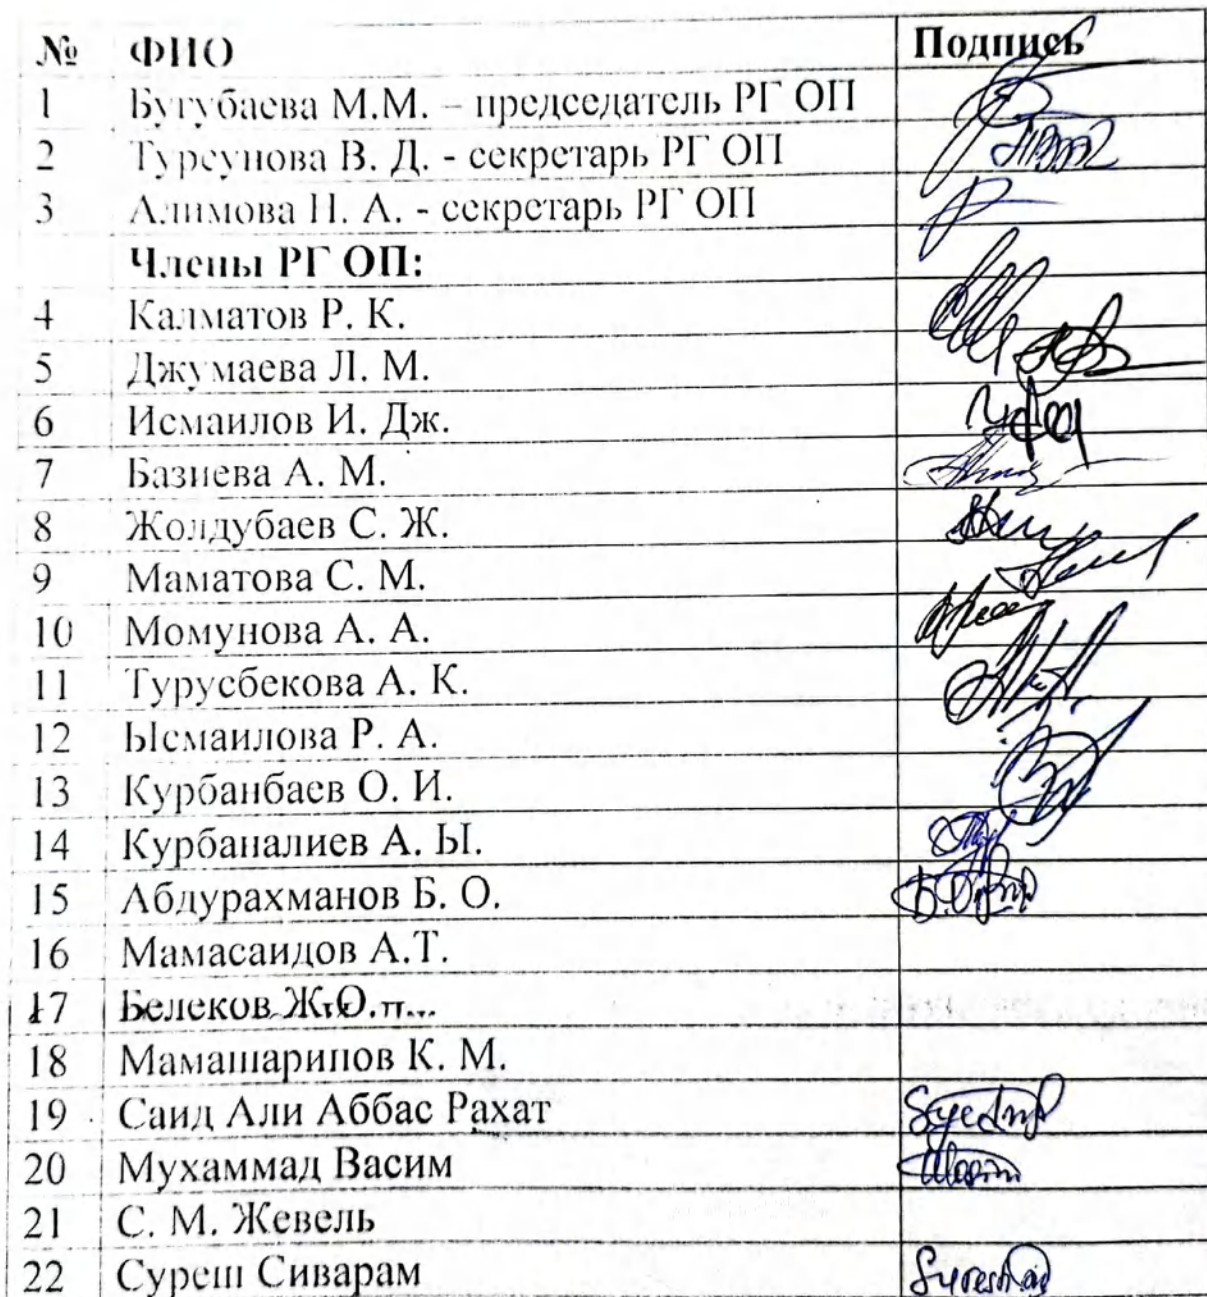 № ФИО Подпись
1 Бугубаева М.М. – председатель РГ ОП
2 Турсунова В. Д. - секретарь РГ ОП
3 Алимова Н. А. - секретарь РГ ОП
Члены РГ ОП:
4 Калматов Р. К.
5 Джумаева Л. М.
6 Исмаилов И. Дж.
7 Базиева А. М.
8 Жолдубаев С. Ж.
9 Маматова С. М.
10 Момунова А. А.
11 Турусбекова А. К.
12 Ысмаилова Р. А.
13 Курбанбаев О. И.
14 Курбаналиев А. Ы.
15 Абдурахманов Б. О.
16 Мамасаидов А.Т.
17 Белеков Ж.О.
18 Мамашарипов К. М.
19 Саид Али Аббас Рахат
20 Мухаммад Васим
21 С. М. Жевель
22 Суреш Сиварам